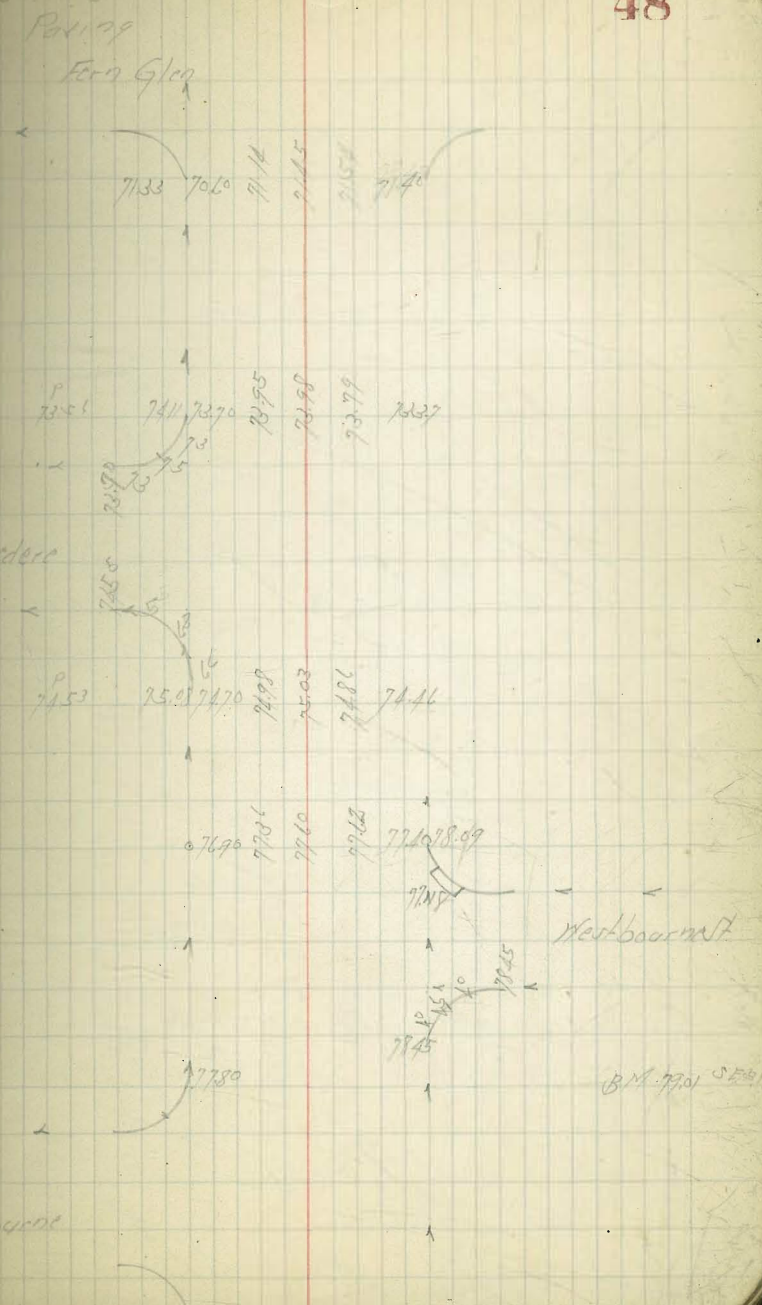 48
Paving
Fern Glen
71.33 70.60 71.14 71.45 71.40
P
73.56 74.11 73.70 73.95 73.98 73.79 73.37
73
75
73
73.70
dere
74.55
P
74.53 75.03 74.70 74.98 75.03 74.86 74.46
76.90 77.36 77.60 77.62 77.40 78.09
77.48
Westbourne St
78.45
78.45
77.80
BM 79.01
urne